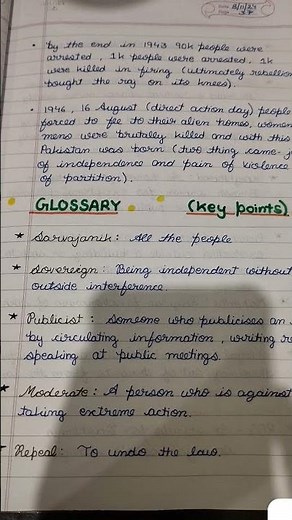 Date 8/11/24
• by the end in 1943 90k people were
arrested, 1k people were arrested, 1k
were killed in firing (ultimately rebellion
bought the raj on its knees).
• 1946, 16 August (direct action day) people
forced to fee to their alien homes, women
mens were brutally killed and with this
Pakistan was born (two thing came-
of independence and pain of violence
of partition).
GLOSSARY (key points)
★ Sarvajanik: All the people
★ Sovereign: Being independent without
outside interference
★ Publicist: Someone who publicises an
by circulating information, writing
speaking at public meetings.
★ Moderate: A person who is against
taking extreme action.
Repeal: To undo the law.